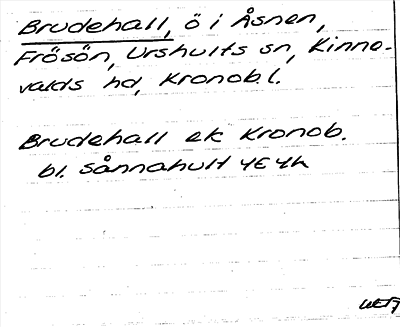 Brudehall, ö i Åsnen,
Frösön, Urshults sn, Kinne-
valds hd, Kronob.l.
Brudehall ek Kronob.
bl. Sånnahult 4E4h